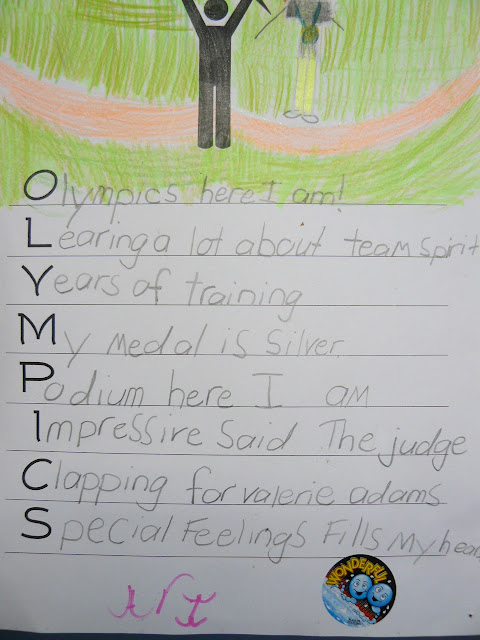 Olympics here I am!
Learing a lot about team spirit
Years of training
My medal is Silver.
Podium here I am
Impressive Said The judge
Clapping for valerie adams
Special Feelings Fills My hear
WONDERFUL